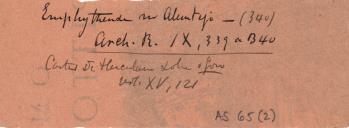 Emphytheuse no Alentejo — (340)
Arch. R. IX, 339 a 340
Cartas de Herculano sobre o foro
vol. XV, 121
AS 65(2)